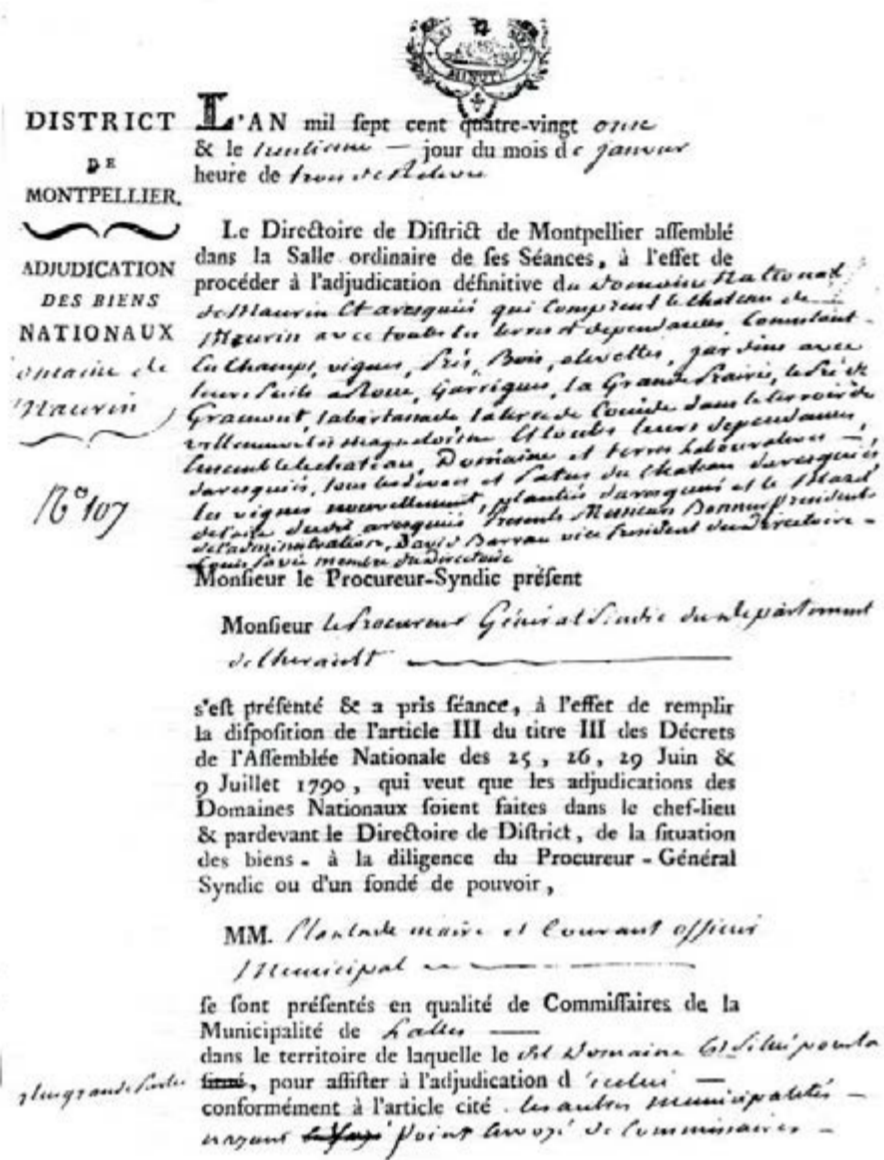 MINUTE
DISTRICT
DE
MONTPELLIER.
ADJUDICATION
DES BIENS
NATIONAUX
omaine de
Maurin
N° 107
L'AN mil ſept cent quatre-vingt onze
& le trentieme — jour du mois de janvier
heure de trois de Relevée
Le Directoire de Diſtrict de Montpellier aſſemblé
dans la Salle ordinaire de ſes Séances, à l'effet de
procéder à l'adjudication définitive du Domaine National
de Maurin Et aresquiés qui comprend le chateau de
Maurin avec toutes les terres et dependances, Consistant
En Champs, vignes, Prés, Bois, olivettes, jardins avec
leurs Puits a Roue, Garrigues, la Grande Prairie, le Pré de
Gramont, la bartassade la terre de Couide dans le terroir de
villeneuve les maguelonne Et toutes leurs dependances,
Ensemble le chateau, Domaine et terres labouratives —
daresquiés, tous les divers et Patus du chateau daresquiés
les vignes nouvellement plantées daresquiés et le
aresquiés Presents Messieurs Bonnier president
de l'administration, David Barrau vice President du directoire —
membre du directoire
Monſieur le Procureur-Syndic préſent
Monſieur le Procureur Général Sindic du departement
de lherault
s'eſt préſenté & a pris ſéance, à l'effet de remplir
la diſpoſition de l'article III du titre III des Décrets
de l'Aſſemblée Nationale des 25, 26, 29 Juin &
9 Juillet 1790, qui veut que les adjudications des
Domaines Nationaux ſoient faites dans le chef-lieu
& pardevant le Directoire de Diſtrict, de la ſituation
des biens - à la diligence du Procureur-Général
Syndic ou d'un fondé de pouvoir,
MM. Plantade maire et Courant officier
Municipal
ſe ſont préſentés en qualité de Commiſſaires de la
Municipalité de Lattes —
dans le territoire de laquelle le dit Domaine Est Situé pour la
plus grande Partie
ſitué, pour aſſiſter à l'adjudication d'icelui —
conformément à l'article cité. les autres municipalités
nayant point Envoyé de Commissaires —